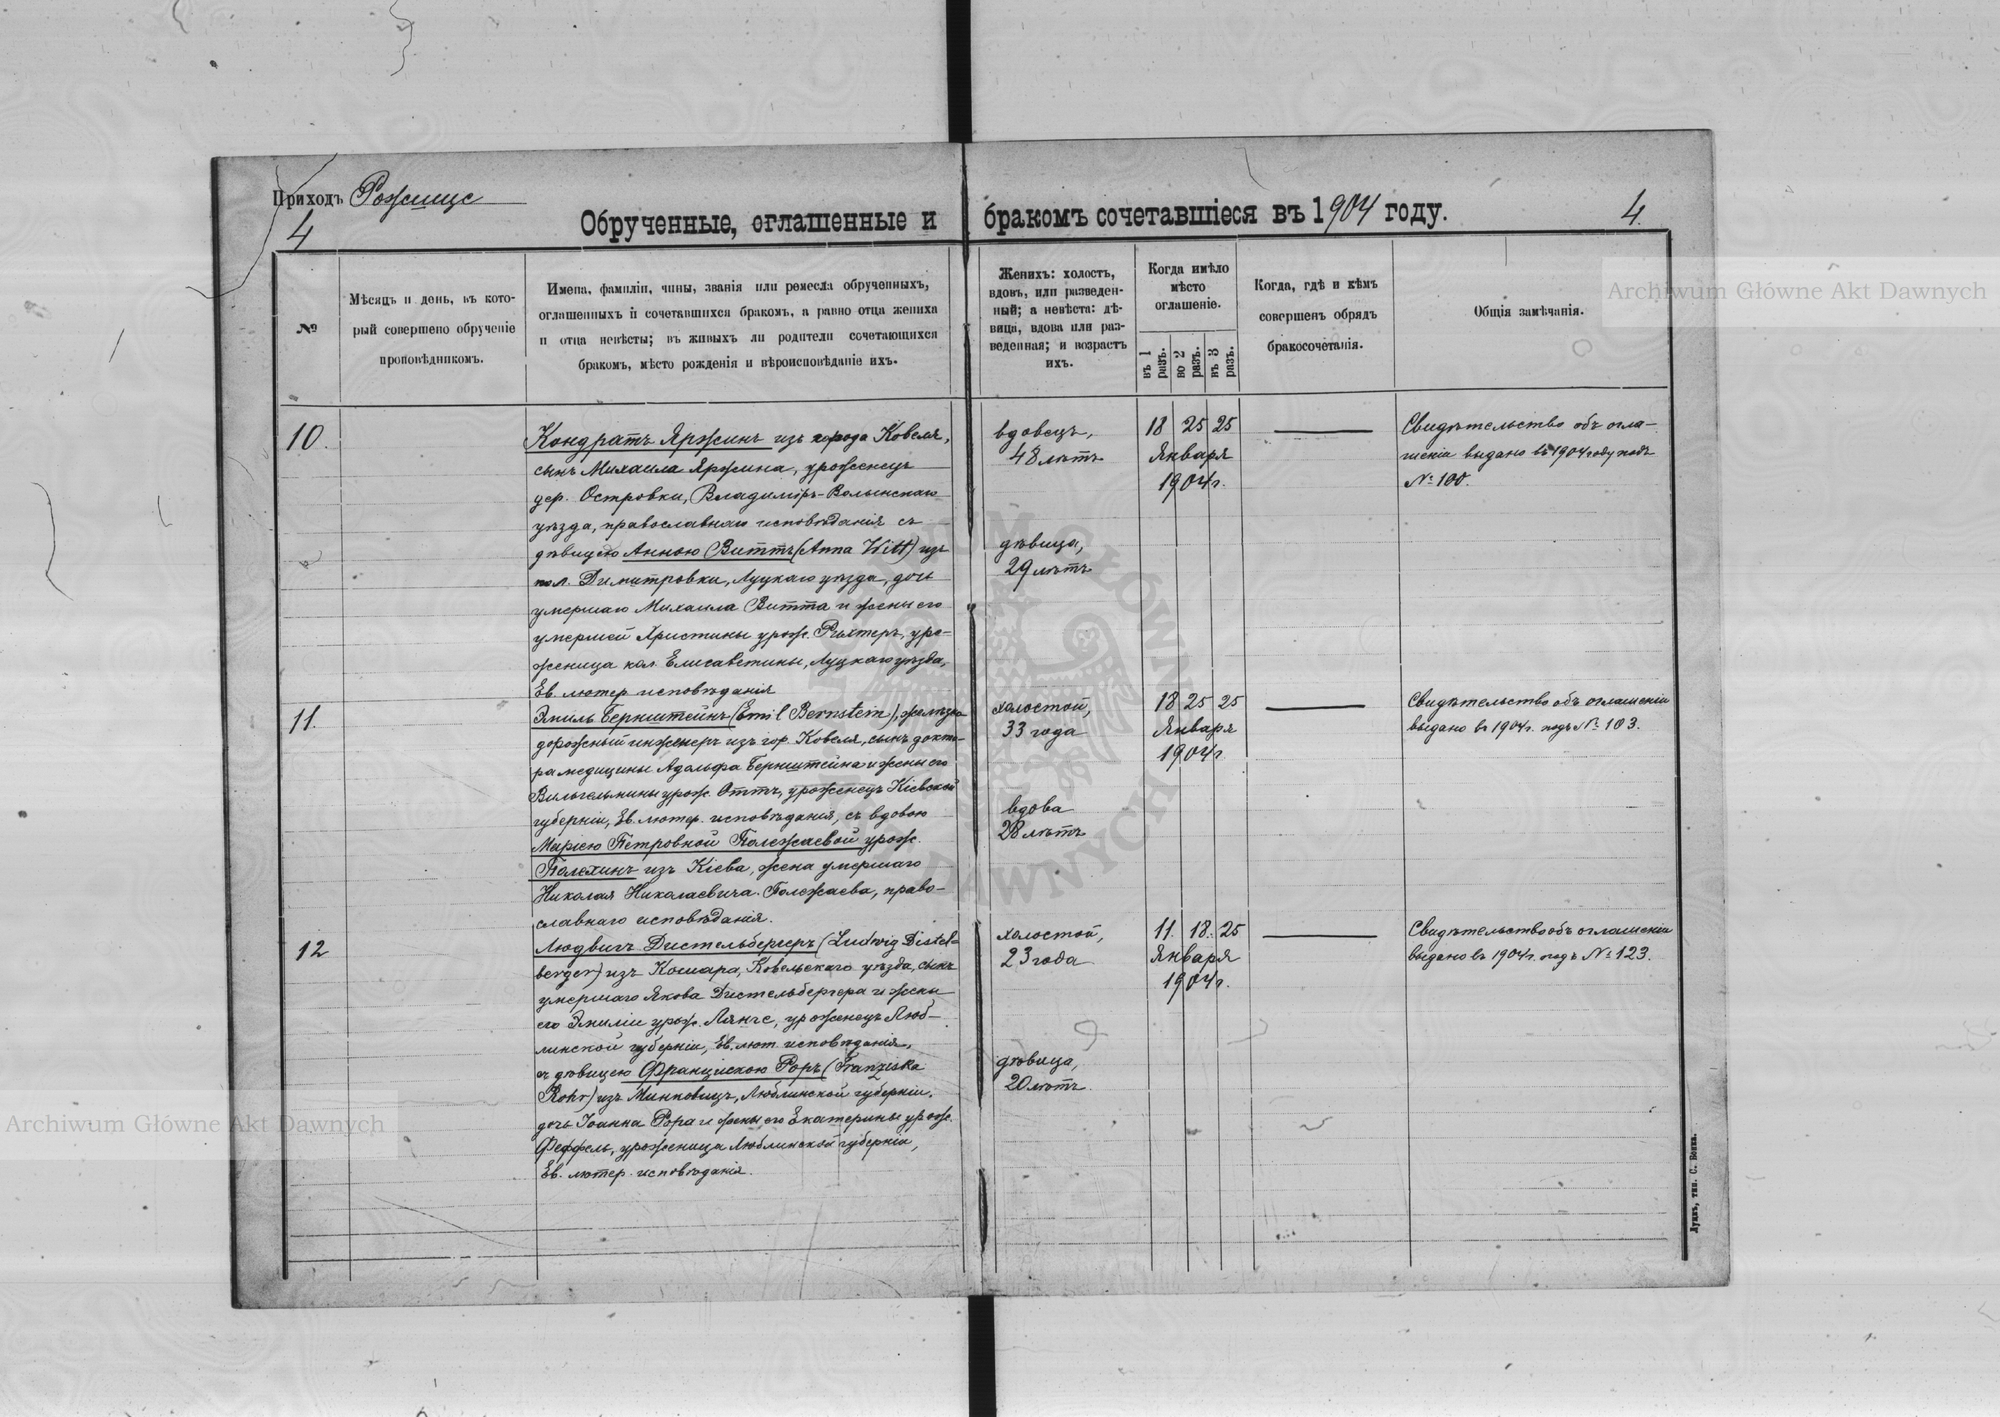 Приходъ Рожище
4
Обрученные, оглашенные и бракомъ сочетавшіеся въ 1904 году.
4.
№
Мѣсяцъ и день, въ кото-
рый совершено обрученіе
проповѣдникомъ.
Имена, фамиліи, чины, званія или ремесла обрученныхъ,
оглашенныхъ и сочетавшихся бракомъ, а равно отца жениха
и отца невѣсты; въ живыхъ ли родители сочетающихся
бракомъ, мѣсто рожденія и вѣроисповѣданіе ихъ.
Женихъ: холостъ,
вдовъ, или разведен-
ный; а невѣста: дѣ-
вица, вдова или раз-
веденная; и возрастъ
ихъ.
Когда имѣло
мѣсто
оглашеніе.
въ 1 разъ.
во 2 разъ.
въ 3 разъ.
Когда, гдѣ и кѣмъ
совершенъ обрядъ
бракосочетанія.
Общія замѣчанія.
10.
Кондратъ Яржинъ изъ города Ковеля,
сынъ Михаила Яржина, уроженецъ
дер. Островки, Владиміръ-Волынскаго
уѣзда, православнаго исповѣданія съ
дѣвицею Анною Виттъ (Anna Witt) изъ
кол. Димитровки, Луцкаго уѣзда, дочь
умершаго Михаила Витта и жены его
умершей Христины урож. Рихтеръ, уро-
женица кол. Елисаветины, Луцкаго уѣзда,
Ев. лютер исповѣданія
вдовецъ,
48 лѣтъ
дѣвица,
29 лѣтъ
18 25 25
Января
1904 г.
Свидѣтельство объ огла-
шеніи выдано въ 1904 году подъ
№ 100.
11.
Эмиль Бернштейнъ (Emil Bernstein), желѣзно
дорожный инженеръ изъ гор. Ковеля, сынъ докто-
ра медицины Адольфа Бернштейна и жены его
Вильгельмины урож. Оттъ, уроженецъ Кіевской
губерніи, Ев. лютер. исповѣданія, съ вдовою
Маріею Петровной Полежаевой урож.
Полехинъ изъ Кіева, жена умершаго
Николая Николаевича Полежаева, право-
славнаго исповѣданія.
холостой,
33 года
вдова
28 лѣтъ
18 25 25
Января
1904 г
Свидѣтельство объ оглашеніи
выдано въ 1904 г. подъ № 103.
12
Людвигъ Дистельбергеръ (Ludwig Distel-
berger) изъ Кошара, Ковельскаго уѣзда, сынъ
умершаго Якова Дистельбергера и жены
его Эмиліи урож. Лянге, уроженецъ Люб-
линской губерніи, Ев. лют. исповѣданія,
съ дѣвицею Францискою Роръ (Franziska
Rohr) изъ Минковицъ, Люблинской губерніи,
дочь Іоанна Рора и жены его Екатерины урож.
Феффель, уроженица Люблинской губерніи,
Ев. лютер. исповѣданія.
холостой,
23 года
дѣвица,
20 лѣтъ.
11. 18. 25
Января
1904 г.
Свидѣтельство объ оглашеніи
выдано въ 1904 г. подъ № 123.
Луцкъ, тип. С. Бокка.
Archiwum Główne Akt Dawnych
Archiwum Główne Akt Dawnych